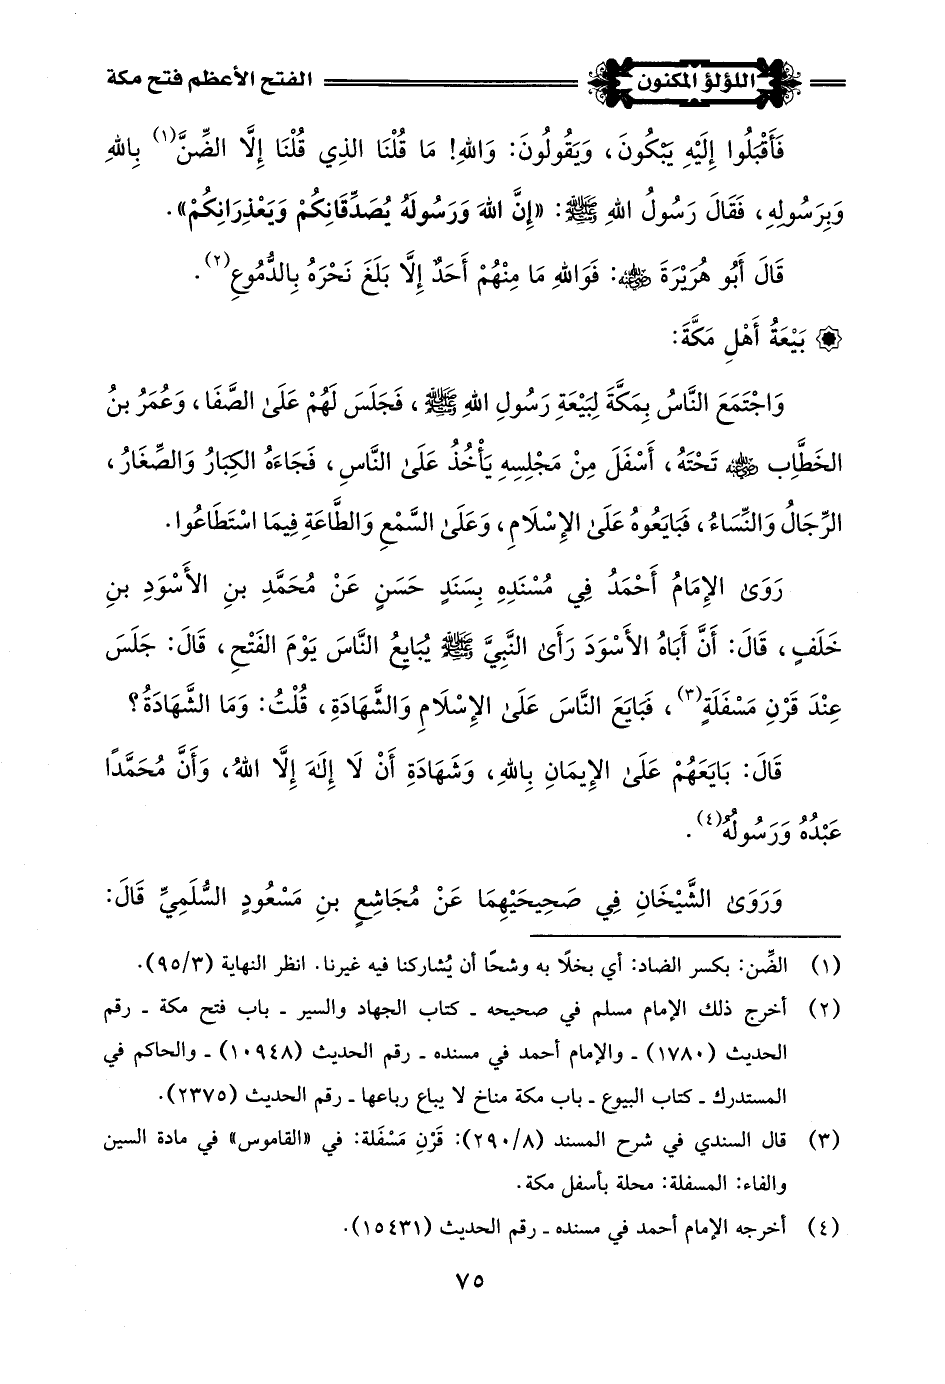 اللؤلؤ المكنون
الفتح الأعظم فتح مكة
فَأَقْبَلُوا إِلَيْهِ يَبْكُونَ، وَيَقُولُونَ: وَاللهِ! مَا قُلْنَا الذِي قُلْنَا إِلَّا الضِّنَّ(١) بِاللهِ
وَبِرَسُولِهِ، فَقَالَ رَسُولُ اللهِ ﷺ: «إِنَّ اللهَ وَرَسُولَهُ يُصَدِّقَانِكُمْ وَيَعْذِرَانِكُمْ».
قَالَ أَبُو هُرَيْرَةَ رضي الله عنه: فَوَاللهِ مَا مِنْهُمْ أَحَدٌ إِلَّا بَلَغَ نَحْرَهُ بِالدُّمُوعِ(٢).
بَيْعَةُ أَهْلِ مَكَّةَ:
وَاجْتَمَعَ النَّاسُ بِمَكَّةَ لِبَيْعَةِ رَسُولِ اللهِ ﷺ، فَجَلَسَ لَهُمْ عَلَىٰ الصَّفَا، وَعُمَرُ بنُ
الخَطَّابِ رضي الله عنه تَحْتَهُ، أَسْفَلَ مِنْ مَجْلِسِهِ يَأْخُذُ عَلَىٰ النَّاسِ، فَجَاءَهُ الكِبَارُ وَالصِّغَارُ،
الرِّجَالُ وَالنِّسَاءُ، فَبَايَعُوهُ عَلَىٰ الإِسْلَامِ، وَعَلَىٰ السَّمْعِ وَالطَّاعَةِ فِيمَا اسْتَطَاعُوا.
رَوَىٰ الإِمَامُ أَحْمَدُ فِي مُسْنَدِهِ بِسَنَدٍ حَسَنٍ عَنْ مُحَمَّدِ بنِ الأَسْوَدِ بنِ
خَلَفٍ، قَالَ: أَنَّ أَبَاهُ الأَسْوَدَ رَأَىٰ النَّبِيَّ ﷺ يُبَايِعُ النَّاسَ يَوْمَ الفَتْحِ، قَالَ: جَلَسَ
عِنْدَ قَرْنِ مَسْفَلَةٍ(٣)، فَبَايَعَ النَّاسَ عَلَىٰ الإِسْلَامِ وَالشَّهَادَةِ، قُلْتُ: وَمَا الشَّهَادَةُ؟
قَالَ: بَايَعَهُمْ عَلَىٰ الإِيمَانِ بِاللهِ، وَشَهَادَةِ أَنْ لَا إِلَهَ إِلَّا اللهُ، وَأَنَّ مُحَمَّدًا
عَبْدُهُ وَرَسُولُهُ(٤).
وَرَوَىٰ الشَّيْخَانِ فِي صَحِيحَيْهِمَا عَنْ مُجَاشِعِ بنِ مَسْعُودٍ السُّلَمِيِّ قَالَ:
(١) الضِّن: بكسر الضاد: أي بخلًا به وشحًا أن يُشاركنا فيه غيرنا. انظر النهاية (٩٥/٣).
(٢) أخرج ذلك الإمام مسلم في صحيحه ـ كتاب الجهاد والسير ـ باب فتح مكة ـ رقم
الحديث (١٧٨٠) ـ والإمام أحمد في مسنده ـ رقم الحديث (١٠٩٤٨) ـ والحاكم في
المستدرك ـ كتاب البيوع ـ باب مكة مناخ لا يباع رباعها ـ رقم الحديث (٢٣٧٥).
(٣) قال السندي في شرح المسند (٢٩٠/٨): قَرْنِ مَسْفَلة: في «القاموس» في مادة السين
والفاء: المسفلة: محلة بأسفل مكة.
(٤) أخرجه الإمام أحمد في مسنده ـ رقم الحديث (١٥٤٣١).
٧٥